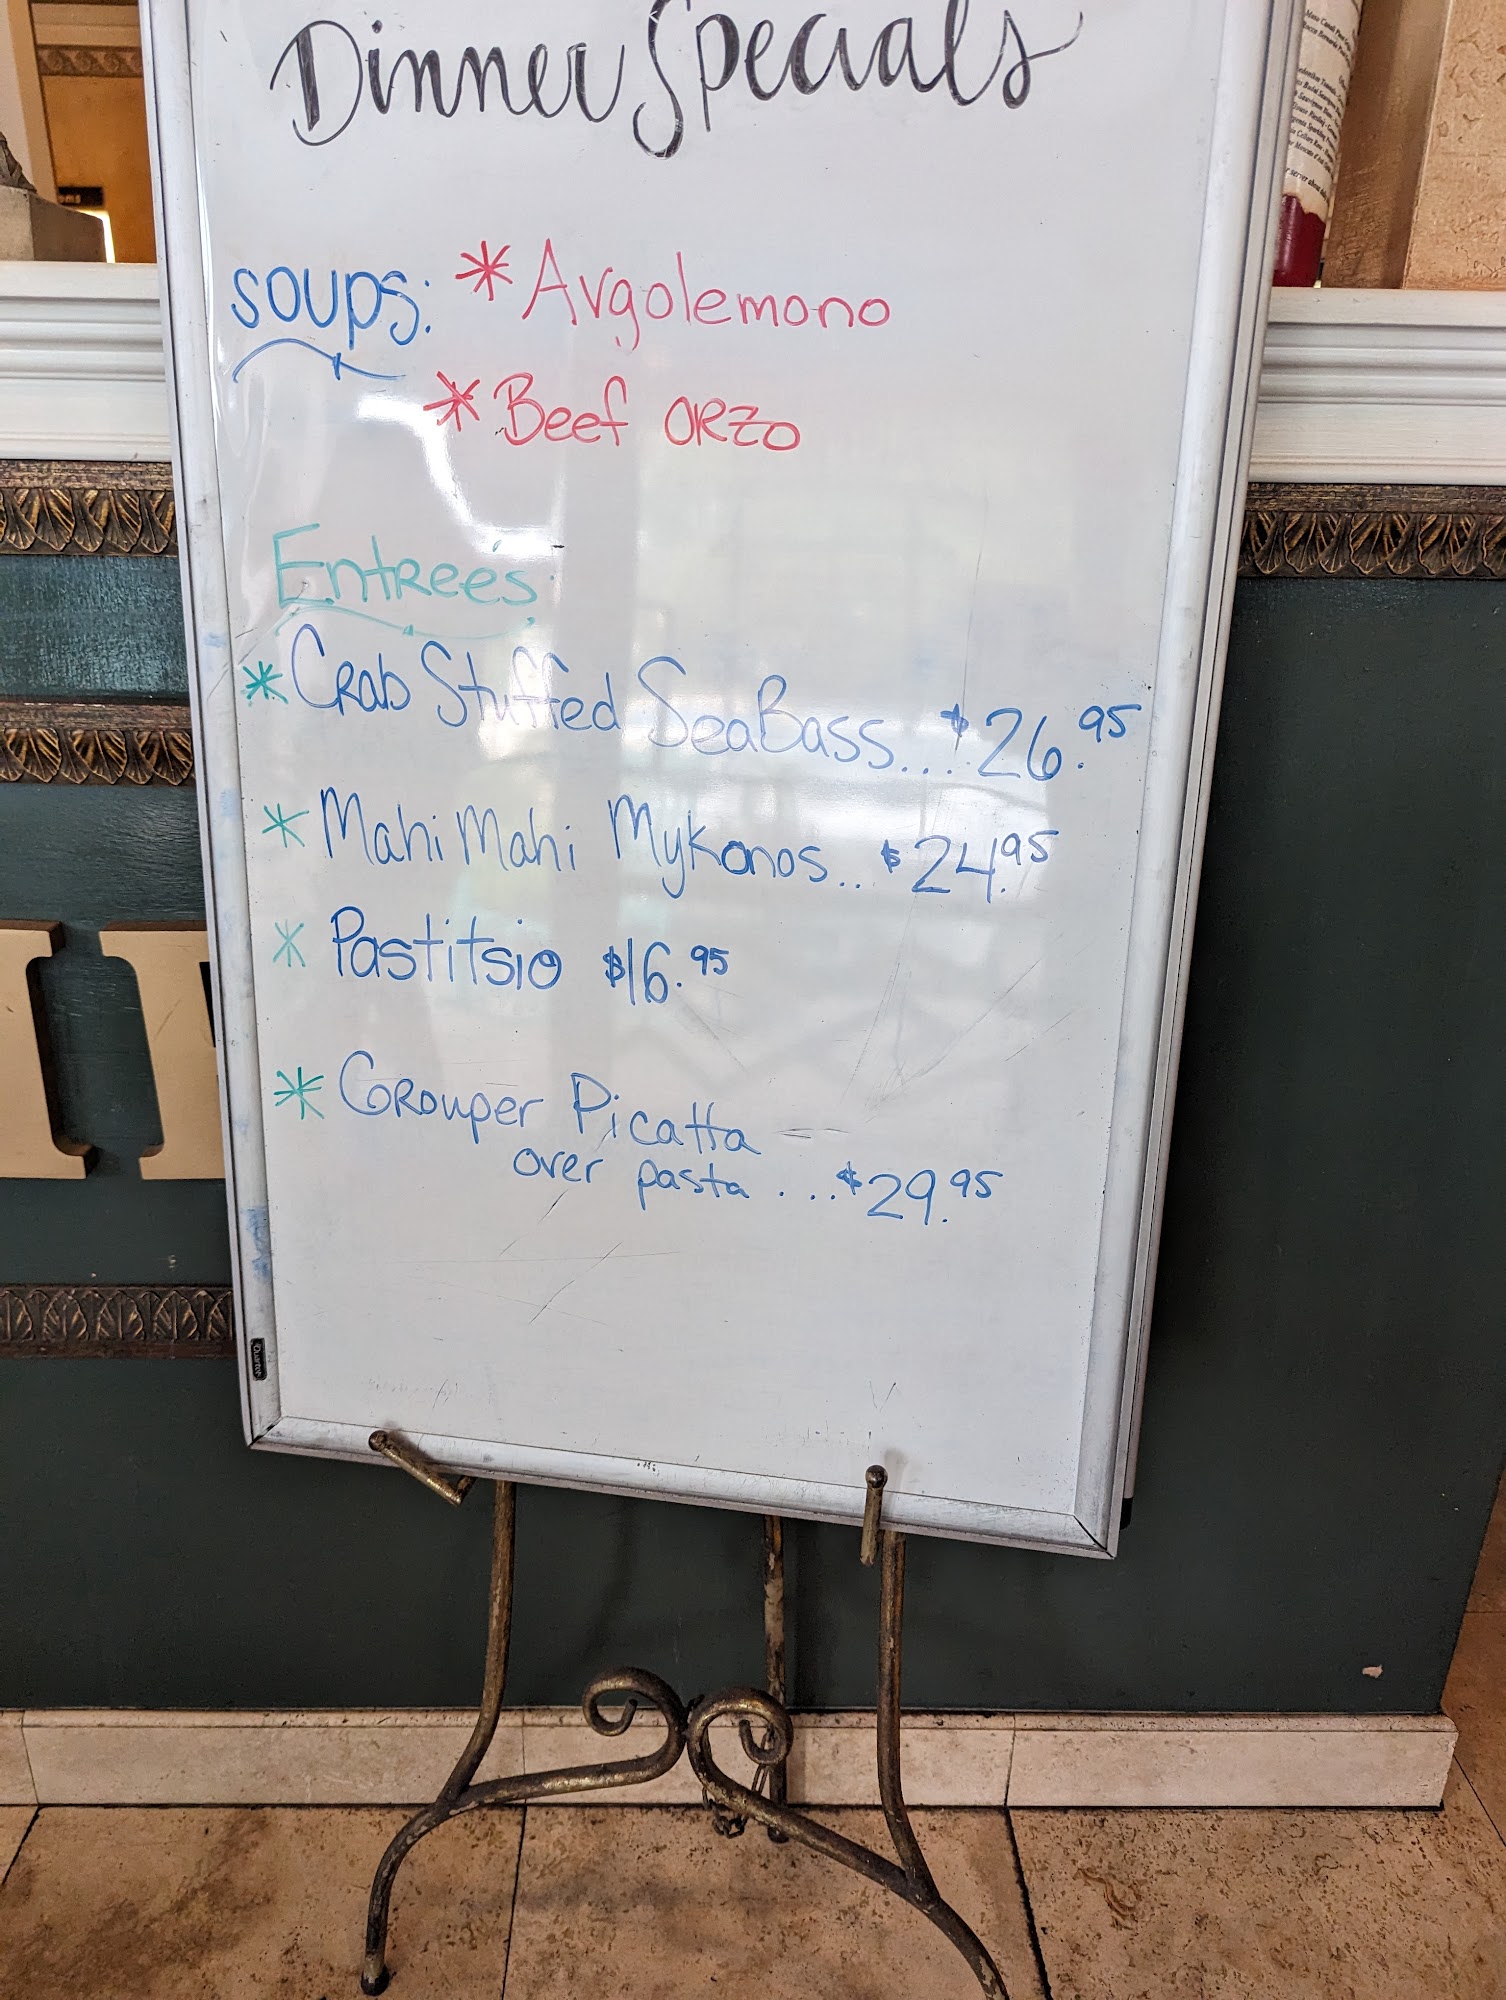 Dinner Specials
Soups: * Avgolemono
* Beef ORZO
Entreés:
* Crab Stuffed SeaBass.... $26.95
* Mahi Mahi Mykonos... $24.95
* Pastitsio $16.95
* Grouper Picatta
over pasta .... $29.95
Quartet